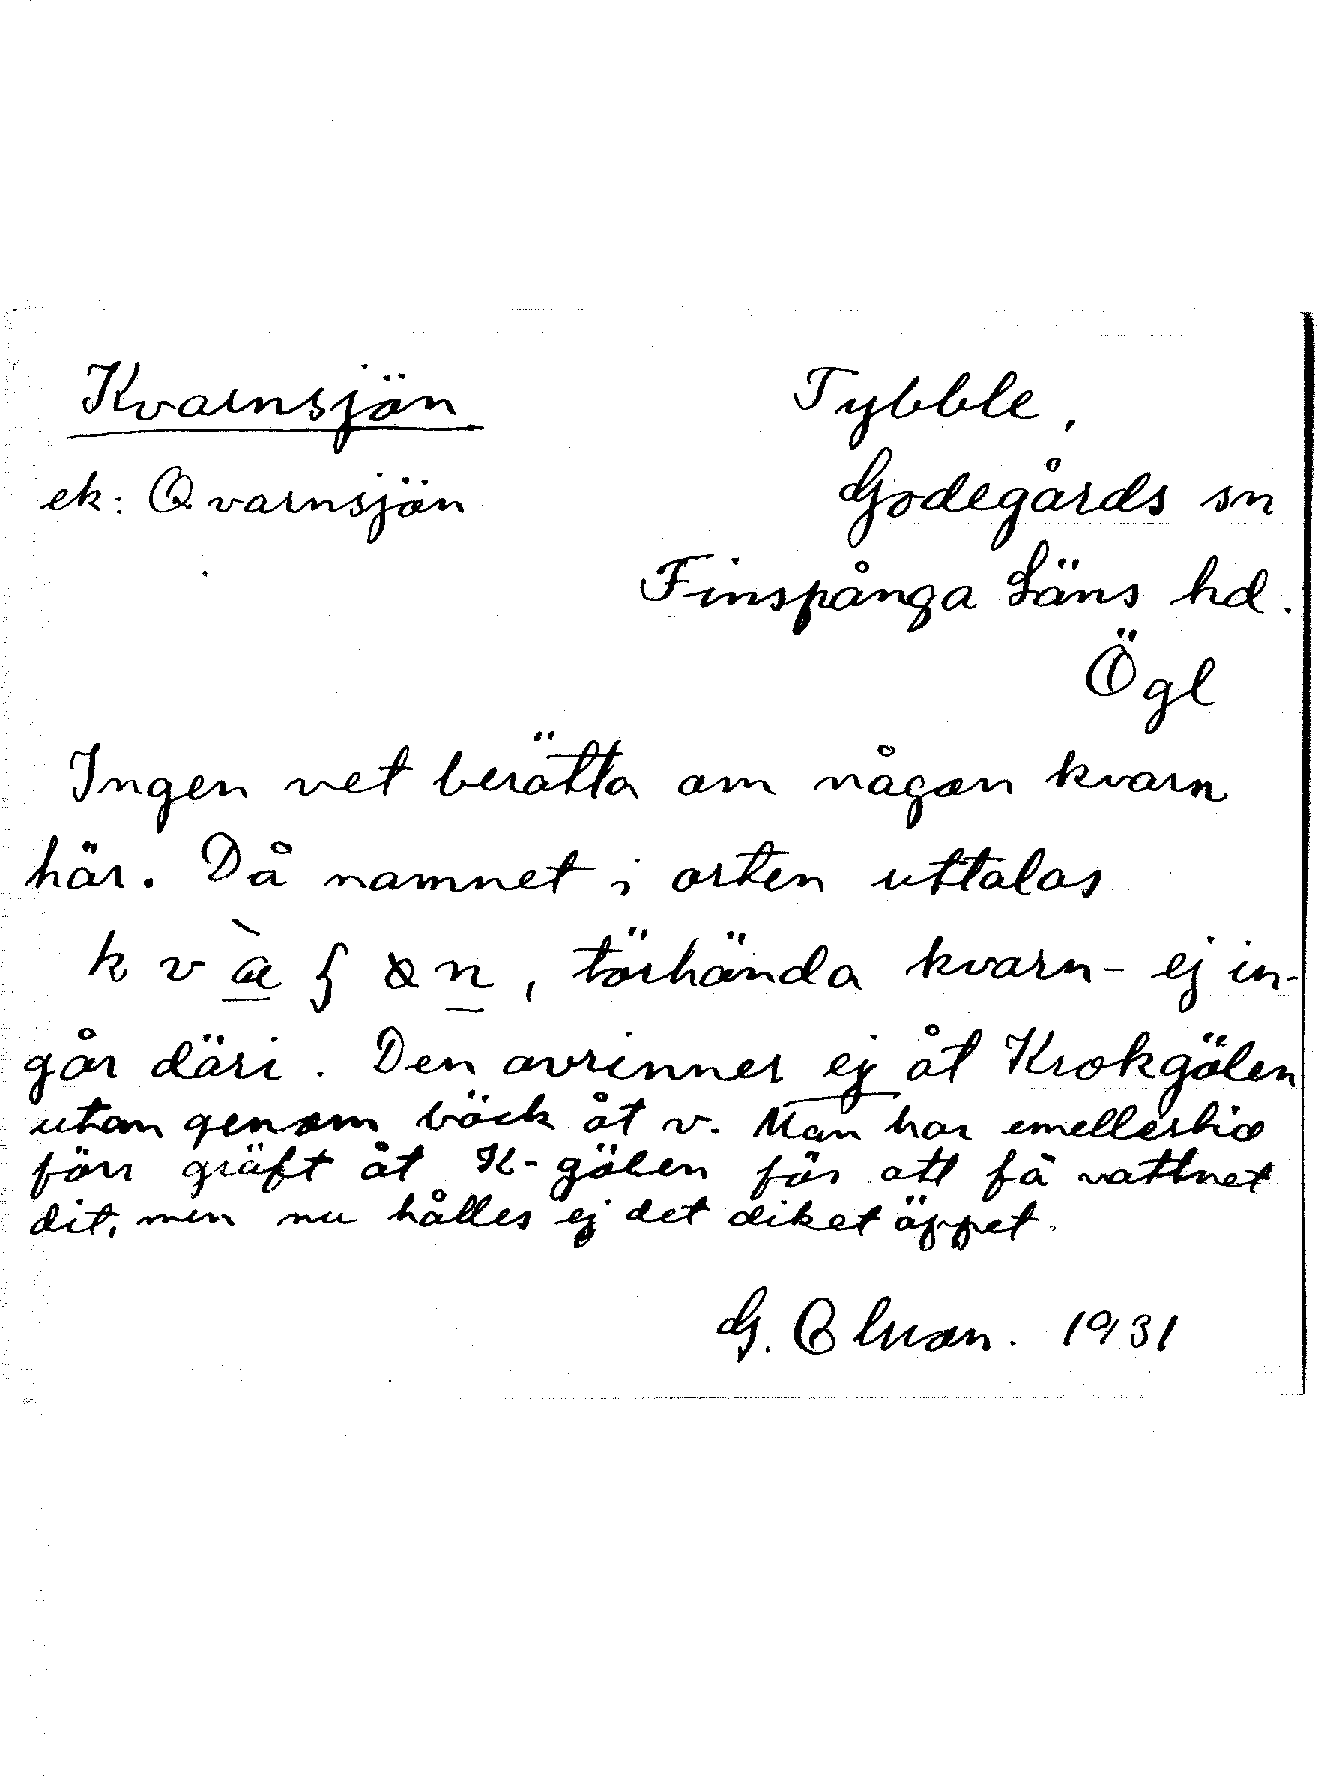 Kvarnsjön
Tybble,
ek: Qvarnsjön
Godegårds sn
Finspånga Läns hd.
Ögl
Ingen vet berätta om någon kvarn
här. Då namnet i orten uttalas
törhända kvarn- ej in-
går däri. Den avrinner ej åt Krokgölen
utan genom bäck åt v. Man har emellertid
förr gräft åt K-gölen för att få vattnet
dit, men nu hålles ej det diket öppet.
G. 1931